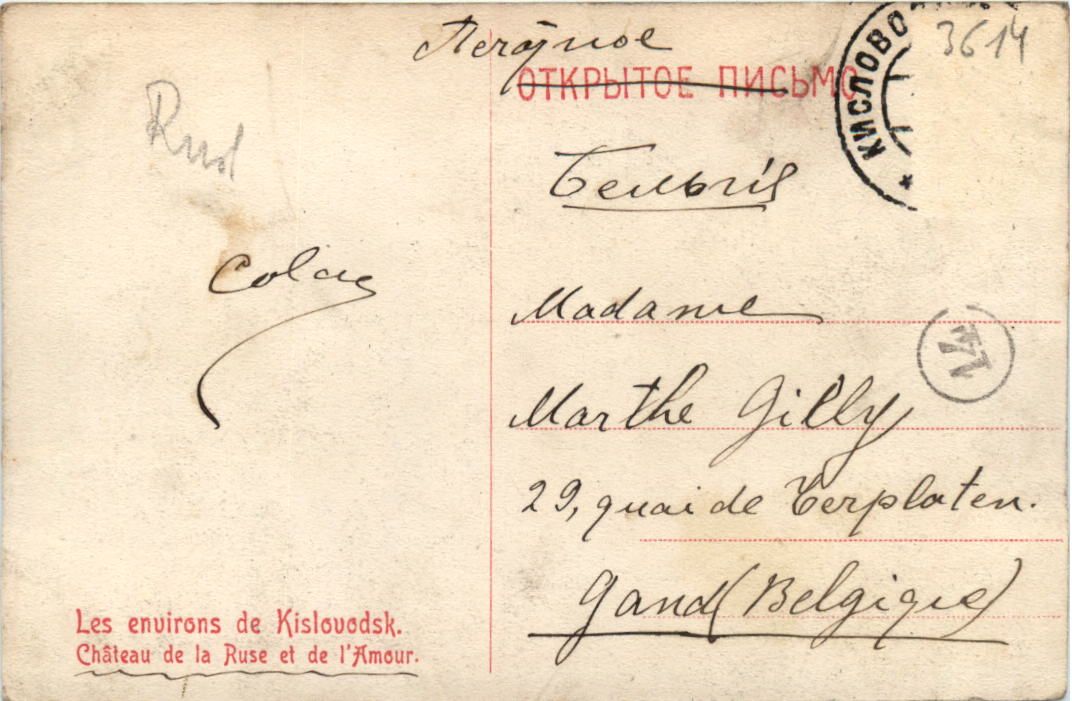 3614
Печатное
ОТКРЫТОЕ ПИСЬМО
КИСЛОВО
Rusl
Бельгія
Colas
Madame
Marthe Gilly
29, quai de Terplaten.
Gand (Belgique)
Les environs de Kislovodsk.
Château de la Ruse et de l'Amour.